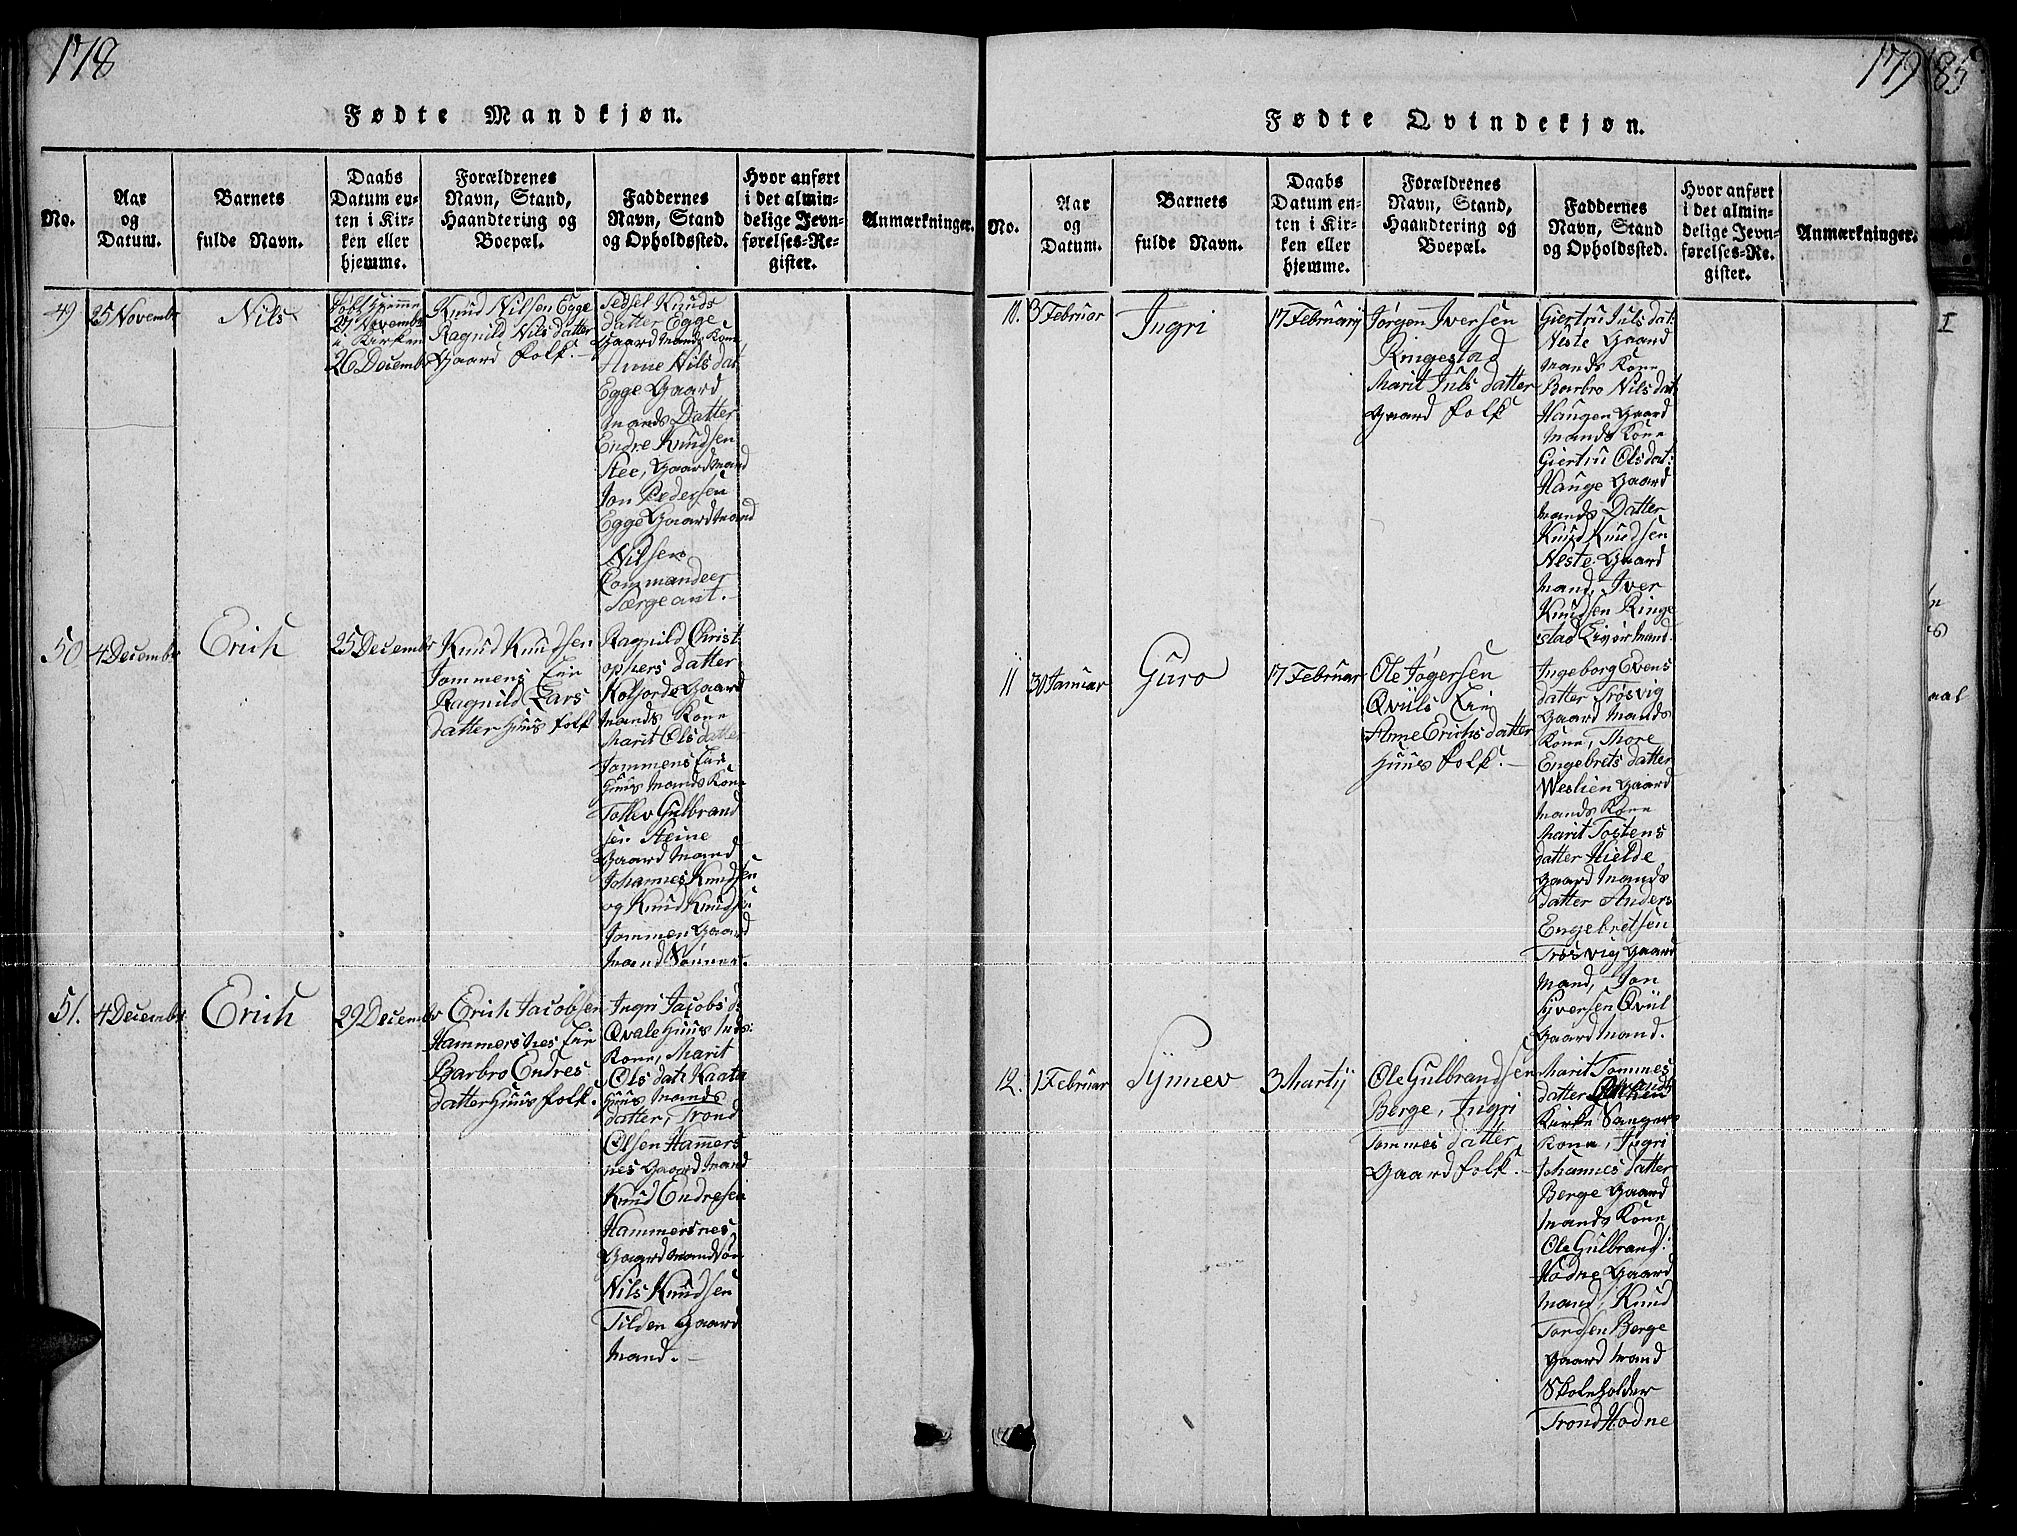 178
Fødte Mandkjøn.
No.
Aar
og
Datum.
Barnets
fulde Navn.
Daabs
Datum en-
ten i Kir-
ken eller
hjemme.
Forældrenes
Navn, Stand,
Haandtering og
Boepæl.
Faddernes
Navn, Stand
og Opholdssted.
Hvor anført
i det almin-
delige Jevn-
førelses-Re-
gister.
Anmærkninger.
49
25 Novembr
Nils
27 Novembr
i Kirken
26 Decembr
Knud Nilsen Egge
Ragnild Nils datter
Gaard folk.
Sedsel Knuds
datter Egge
Gaard mands Kone,
Anne Nils dat
Egge Gaard
mands Datter
Endre Knudsen
Stee, Gaardmand
Jon Pedersen
Egge Gaardmand
Nilsen
Commandeer
Sergeant.
50
4 December
Erich
25 December
Knud Knudsen
Jommens Eie
Ragnild Lars
datter Huus folk
Ragnild Christ
ophers datter
Kolsorde Gaard
mands Kone
Marit Ols datter
Jommens Eie
Huus mands Kone
Tollev Gulbrand
sen Steine
Gaard mand
Johannes Knudsen
og Knud Knudsen
Jommen Gaard
mand Sønner.
51.
4 December
Erich
29 December
Erich Jacobsen
Hammersnes Eie
Barbro Endres
datter Huus folk.
Ingri Jacobs d:
Qvale Huus mds:
Kone, Marit
Ols dat: Kaata
Huus mands
datter, Trond
Olsen Hamers
nes Gaard mand
Knud Endresen
Hammersnes
Gaard mandsøn
Nils Knudsen
Tilden Gaard
mand.
179
Fødte Qvindekjøn.
No.
Aar
og
Datum.
Barnets
fulde Navn.
Daabs
Datum en-
ten i Kir-
ken eller
hjemme.
Forældrenes
Navn, Stand,
Haandtering og
Boepæl.
Faddernes
Navn, Stand
og Opholdssted.
Hvor anført
i det almin-
delige Jevn-
førelses-Re-
gister.
Anmærkninger.
10.
3 Februar
Ingri
17 Februarij
Jørgen Iversen
Ringestad
Marit Juls datter
Gaard folk
Giertru Juls dat:
Neste Gaard
mands Kone
Barbro Nils dat
Haugen Gaard
mands Kone
Giertru Ols dat:
Hauge Gaard
mands Datter
Knud Knudsen
Neste Gaard
mand, Iver
Knudsen Ringe
stad Eier mand.
11
30 Januar
Guro
17 Februar
Ole Jøgersen
Qviils Eie
Anne Erichs datter
Huus folk.
Ingeborg Evens
datter Trøsvig
Gaard mands
Kone, Thore
Engebrets datter
Weslien Gaard
mands Kone
Marit Tostens
datter Hielde
Gaard mands
datter Anders
Engebretsen
Trøsvig Gaard
mand, Jon
Syversen Qviil
Gaard mand.
12.
1 Februar
Synnev
3 Martij
Ole Gulbrandsen
Berge, Ingri
Tommes datter
Gaard folk.
Marit Tommes
datter
Kirke Sangers
Kone, Ingri
Johannes datter
Berge Gaard
mands Kone
Ole Gulbrands:
Hodne Gaard
mand, Knud
Tordsen Berge
Gaard mand
Skoleholder
Trond Hodne
85
I